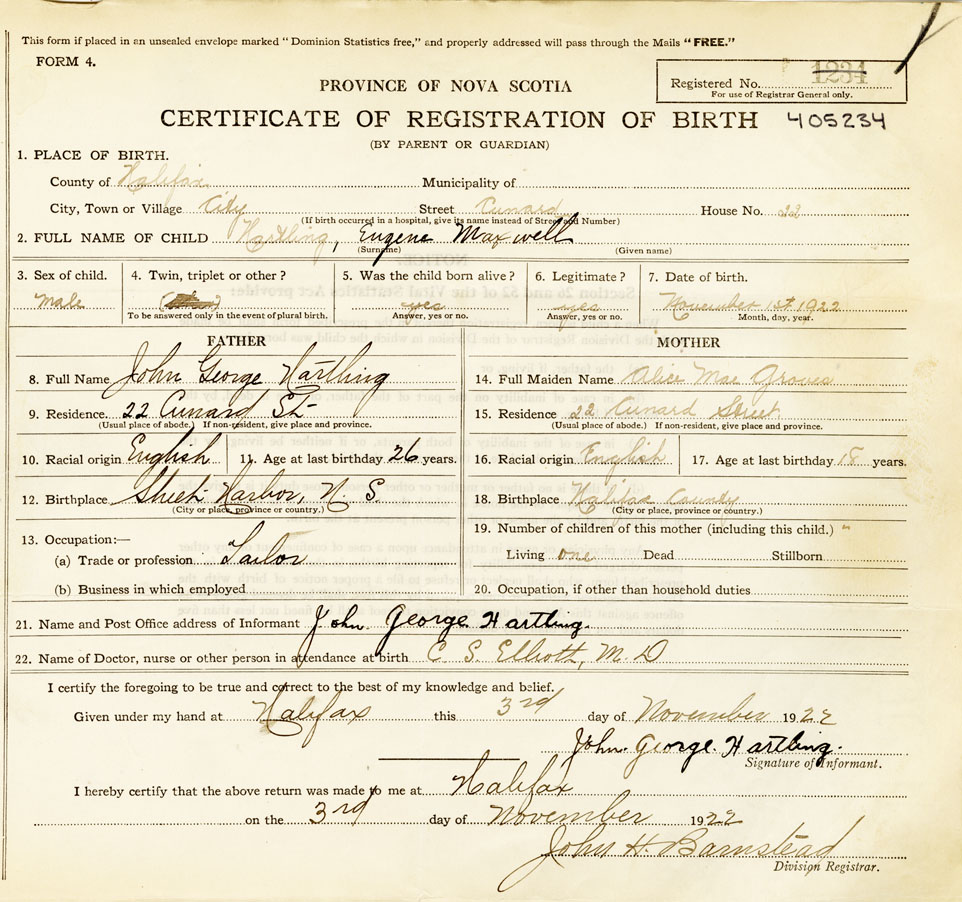 This form if placed in an unsealed envelope marked "Dominion Statistics free," and properly addressed will pass through the Mails "FREE."
FORM 4.
Registered No. 1234
For use of Registrar General only.
PROVINCE OF NOVA SCOTIA
CERTIFICATE OF REGISTRATION OF BIRTH 405234
(BY PARENT OR GUARDIAN)
1. PLACE OF BIRTH.
County of Halifax Municipality of
City, Town or Village City Street Cunard House No. 22
(If birth occurred in a hospital, give its name instead of Street and Number)
2. FULL NAME OF CHILD Hartling, Eugene Maxwell
(Surname) (Given name)
3. Sex of child. 4. Twin, triplet or other? 5. Was the child born alive? 6. Legitimate? 7. Date of birth.
Male yes yes November 1st 1922
To be answered only in the event of plural birth. Answer, yes or no. Answer, yes or no. Month, day, year.
FATHER
8. Full Name John George Hartling
9. Residence. 22 Cunard St
(Usual place of abode.) If non-resident, give place and province.
10. Racial origin English 11. Age at last birthday 26 years.
12. Birthplace Sheet Harbor, N. S.
(City or place, province or country.)
13. Occupation:—
(a) Trade or profession Tailor
(b) Business in which employed
MOTHER
14. Full Maiden Name Alice Mae Groves
15. Residence 22 Cunard Street
(Usual place of abode.) If non-resident, give place and province.
16. Racial origin English 17. Age at last birthday 18 years.
18. Birthplace Halifax County
(City or place, province or country.)
19. Number of children of this mother (including this child.)
Living one Dead Stillborn
20. Occupation, if other than household duties
21. Name and Post Office address of Informant John George Hartling.
22. Name of Doctor, nurse or other person in attendance at birth C. S. Elliott, M. D
I certify the foregoing to be true and correct to the best of my knowledge and belief.
Given under my hand at Halifax this 3rd day of November 1922
John. George. Hartling.
Signature of Informant.
I hereby certify that the above return was made to me at Halifax
on the 3rd day of November 1922
John H. Barnstead
Division Registrar.